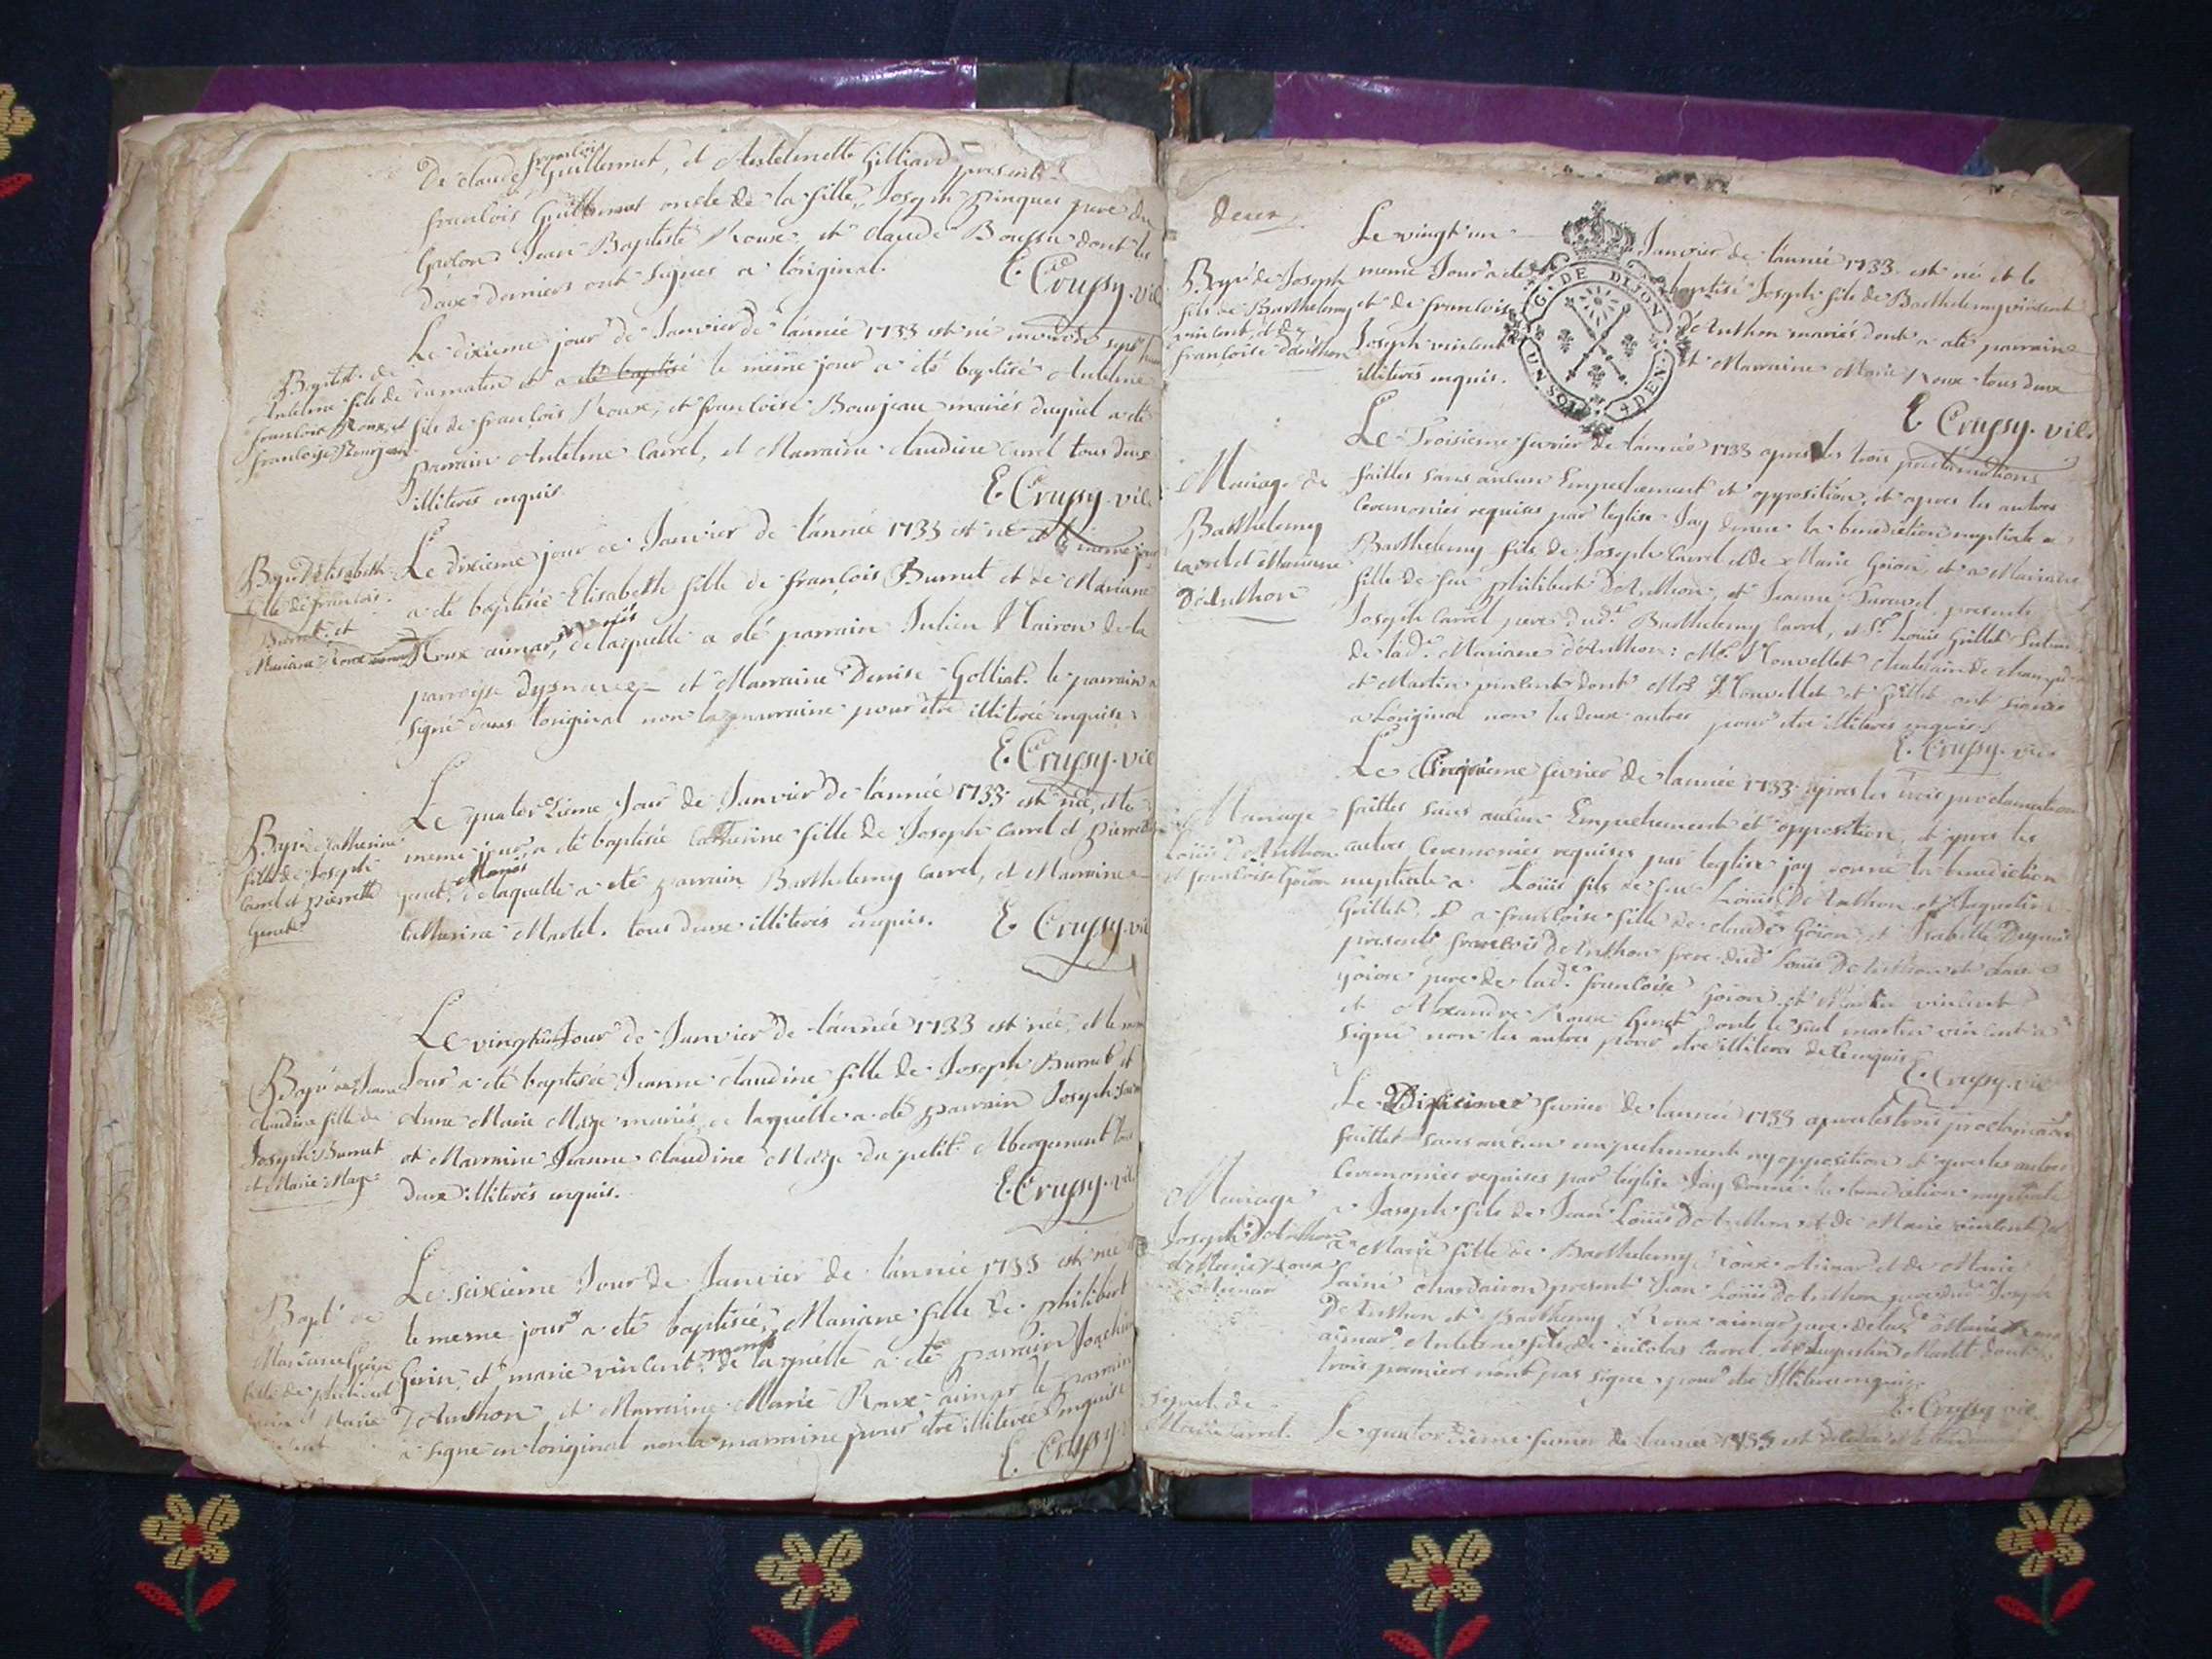 De claude françois Guillermet, et Antelmette Gilliard presents
françois Guillermet oncle de la fille, Joseph pinques pere du
Garcon Jean Baptiste Roux et claude Boussu dont les
deux derniers ont signes a l'original.
E. Crussy. vic
Baptes. de
Antelme fils de
françois Roux, et
françoise Bourjeau
Le dixieme jour de Janvier de l'année 1733 est né
du matin et a été baptisé le même jour a été baptisé Antelme
fils de françois Roux, et françoise Bourjeau mariés duquel a été
parrain Antelme Carrel, et Marraine claudine Carrel tous deux
illiterés enquis.
E. Crussy. vic
Bapt. d'Elisabeth
fille de françois
Burnet et
Mariane Roux
Le dixieme jour de Janvier de l'année 1733 est né et le meme jour
a été baptisée Elisabeth fille de françois Burnet et de Mariane
Roux aimar, mariés de laquelle a été parrain Julien Mairon de la
parroisse et Marraine Denise Golliat. le parrain a
signé dans l'original non la marraine pour être illiterée enquise.
E. Crussy. vic
Bapt. de Catherine
fille de Joseph
Carrel et pierrette
genet
Le quatorzieme Jour de Janvier de l'année 1733 est née, et le
meme jour a été baptisée Catherine fille de Joseph Carrel et pierrette
genet, Mariés de laquelle a été parrain Barthelemy Carrel, et Marraine
Catherine Martel. tous deux illiterés enquis.
E. Crussy. vic
Bapt. de Jeanne
claudine fille de
Joseph Burnet
et Marie Maze
Le vingt Jour de Janvier de l'année 1733 est née, et le meme
Jour a été baptisée Jeanne claudine fille de Joseph Burnet et
Anne Marie Maze mariés, de laquelle a été parrain Joseph
et Marraine Jeanne claudine Maze du petit Abergement tous
deux illiterés enquis.
E. Crussy. vic
Bapt. de
Mariane
fille de philibert
Marie
Le seixieme Jour de Janvier de l'année 1733 est née
le meme jour a été baptisée, Mariane fille de philibert
Gerin, et marie vincent mariés de laquelle a été parrain Joachim
D'Anthon, et Marraine Marie Roux aimar le parrain
a signé en l'original non la marraine pour être illiterée enquise
E. Crussy
deux
Bapt. de Joseph
fils de Barthelemy
vincent, et de
françoise d'anthon
Le vingt un Janvier de l'année 1733 est né et le
meme Jour a été baptisé Joseph fils de Barthelemy vincent
et de françoise d'Anthon mariés dont a été parrain
Joseph vincent et Marraine Marie Roux tous deux
illiterés enquis.
G. DE DIJON
E. Crussy. vic.
Mariage de
Barthelemy
Carrel et Mariane
D'Anthon
Le Troisieme fevrier de l'année 1733 apres les trois proclamations
faittes sans aucun Empechement et opposition, et apres les autres
Ceremonies requises par l'eglise Jay donné la benediction nuptiale a
Barthelemy fils de Joseph Carrel et de Marie Goion, et a Mariane
fille de feu philibert D'Anthon, et Jeanne presents
Joseph Carrel pere dud. Barthelemy Carrel, et Sr. Louis Grillet
de lad. Mariane d'Anthon: Mr. Nouvellet Chatelain de
et Martin vincent dont Mrs Nouvellet et Grillet ont signés
a l'original non les deux autres pour être illiterés enquis.
E. Crussy. vic.
Mariage
Louis D'Anthon
et françoise Goion
Le Cinquieme fevrier de l'année 1733 apres les Trois proclamations
faittes sans aucun Empechement et opposition, et apres les
autres Ceremonies requises par l'eglise jay donné la benediction
nuptiale a Louis fils de feu Louis D'Anthon et Jaqueline
Grillet, et a françoise fille de claude Goion, et Isabelle
presents françois D'Anthon frere dud. Louis D'Anthon et
goion pere de lad. françoise goion, et Martin vincent
et Alexandre Roux Genet dont le seul martin vincent a
signé non les autres pour être illiterés de enquis
E. Crussy. vic
Mariage
Joseph D'Anthon
et Marie Roux
aimar
Le Dixieme fevrier de l'année 1733 apres les trois proclamations
faittes sans aucun empechement ny opposition et apres les autres
Ceremonies requises par l'eglise Jay donné la benediction nuptiale
a Joseph fils de Jean Louis D'Anthon, et de Marie vincent, et
a Marie fille de Barthelemy Roux Aimar et de Marie
presents Jean Louis D'Anthon pere dud. Joseph
D'Anthon et Barthelemy Roux aimar pere de lad. Marie Roux
aimar, Antelme fils de nicolas Carrel, et Augustin Martel dont les
trois premiers n'ont pas signé pour être Illiterés enquis
E. Crussy. vic.
Sepult. de
Marie Carrel.
Le quatorzieme fevrier de l'année 1733 est